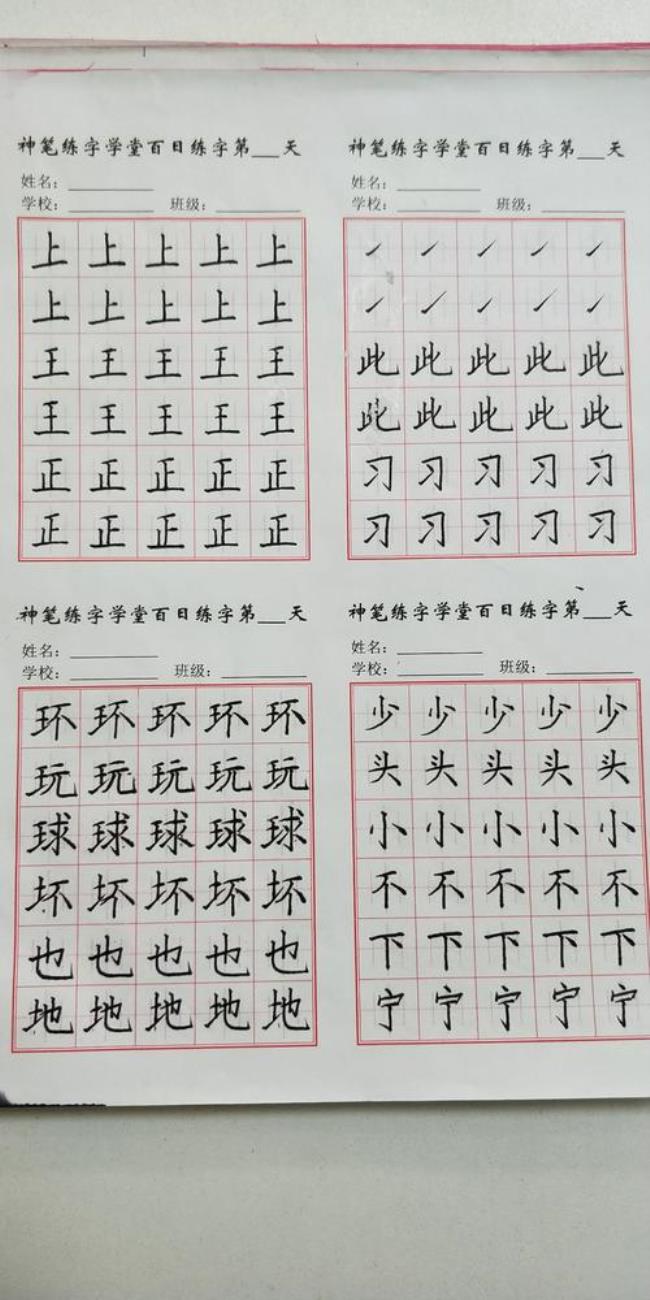 神笔练字学堂百日练字第___天
姓名：
学校： 班级：
上上上上上
上上上上上
王王王王王
王王王王王
正正正正正
正正正正正
神笔练字学堂百日练字第___天
姓名：
学校： 班级：
㇀㇀㇀㇀㇀
㇀㇀㇀㇀㇀
此此此此此
此此此此此
习习习习习
习习习习习
神笔练字学堂百日练字第___天
姓名：
学校： 班级：
环环环环环
玩玩玩玩玩
球球球球球
坏坏坏坏坏
也也也也也
地地地地地
神笔练字学堂百日练字第___天
姓名：
学校： 班级：
少少少少少
头头头头头
小小小小小
不不不不不
下下下下下
宁宁宁宁宁